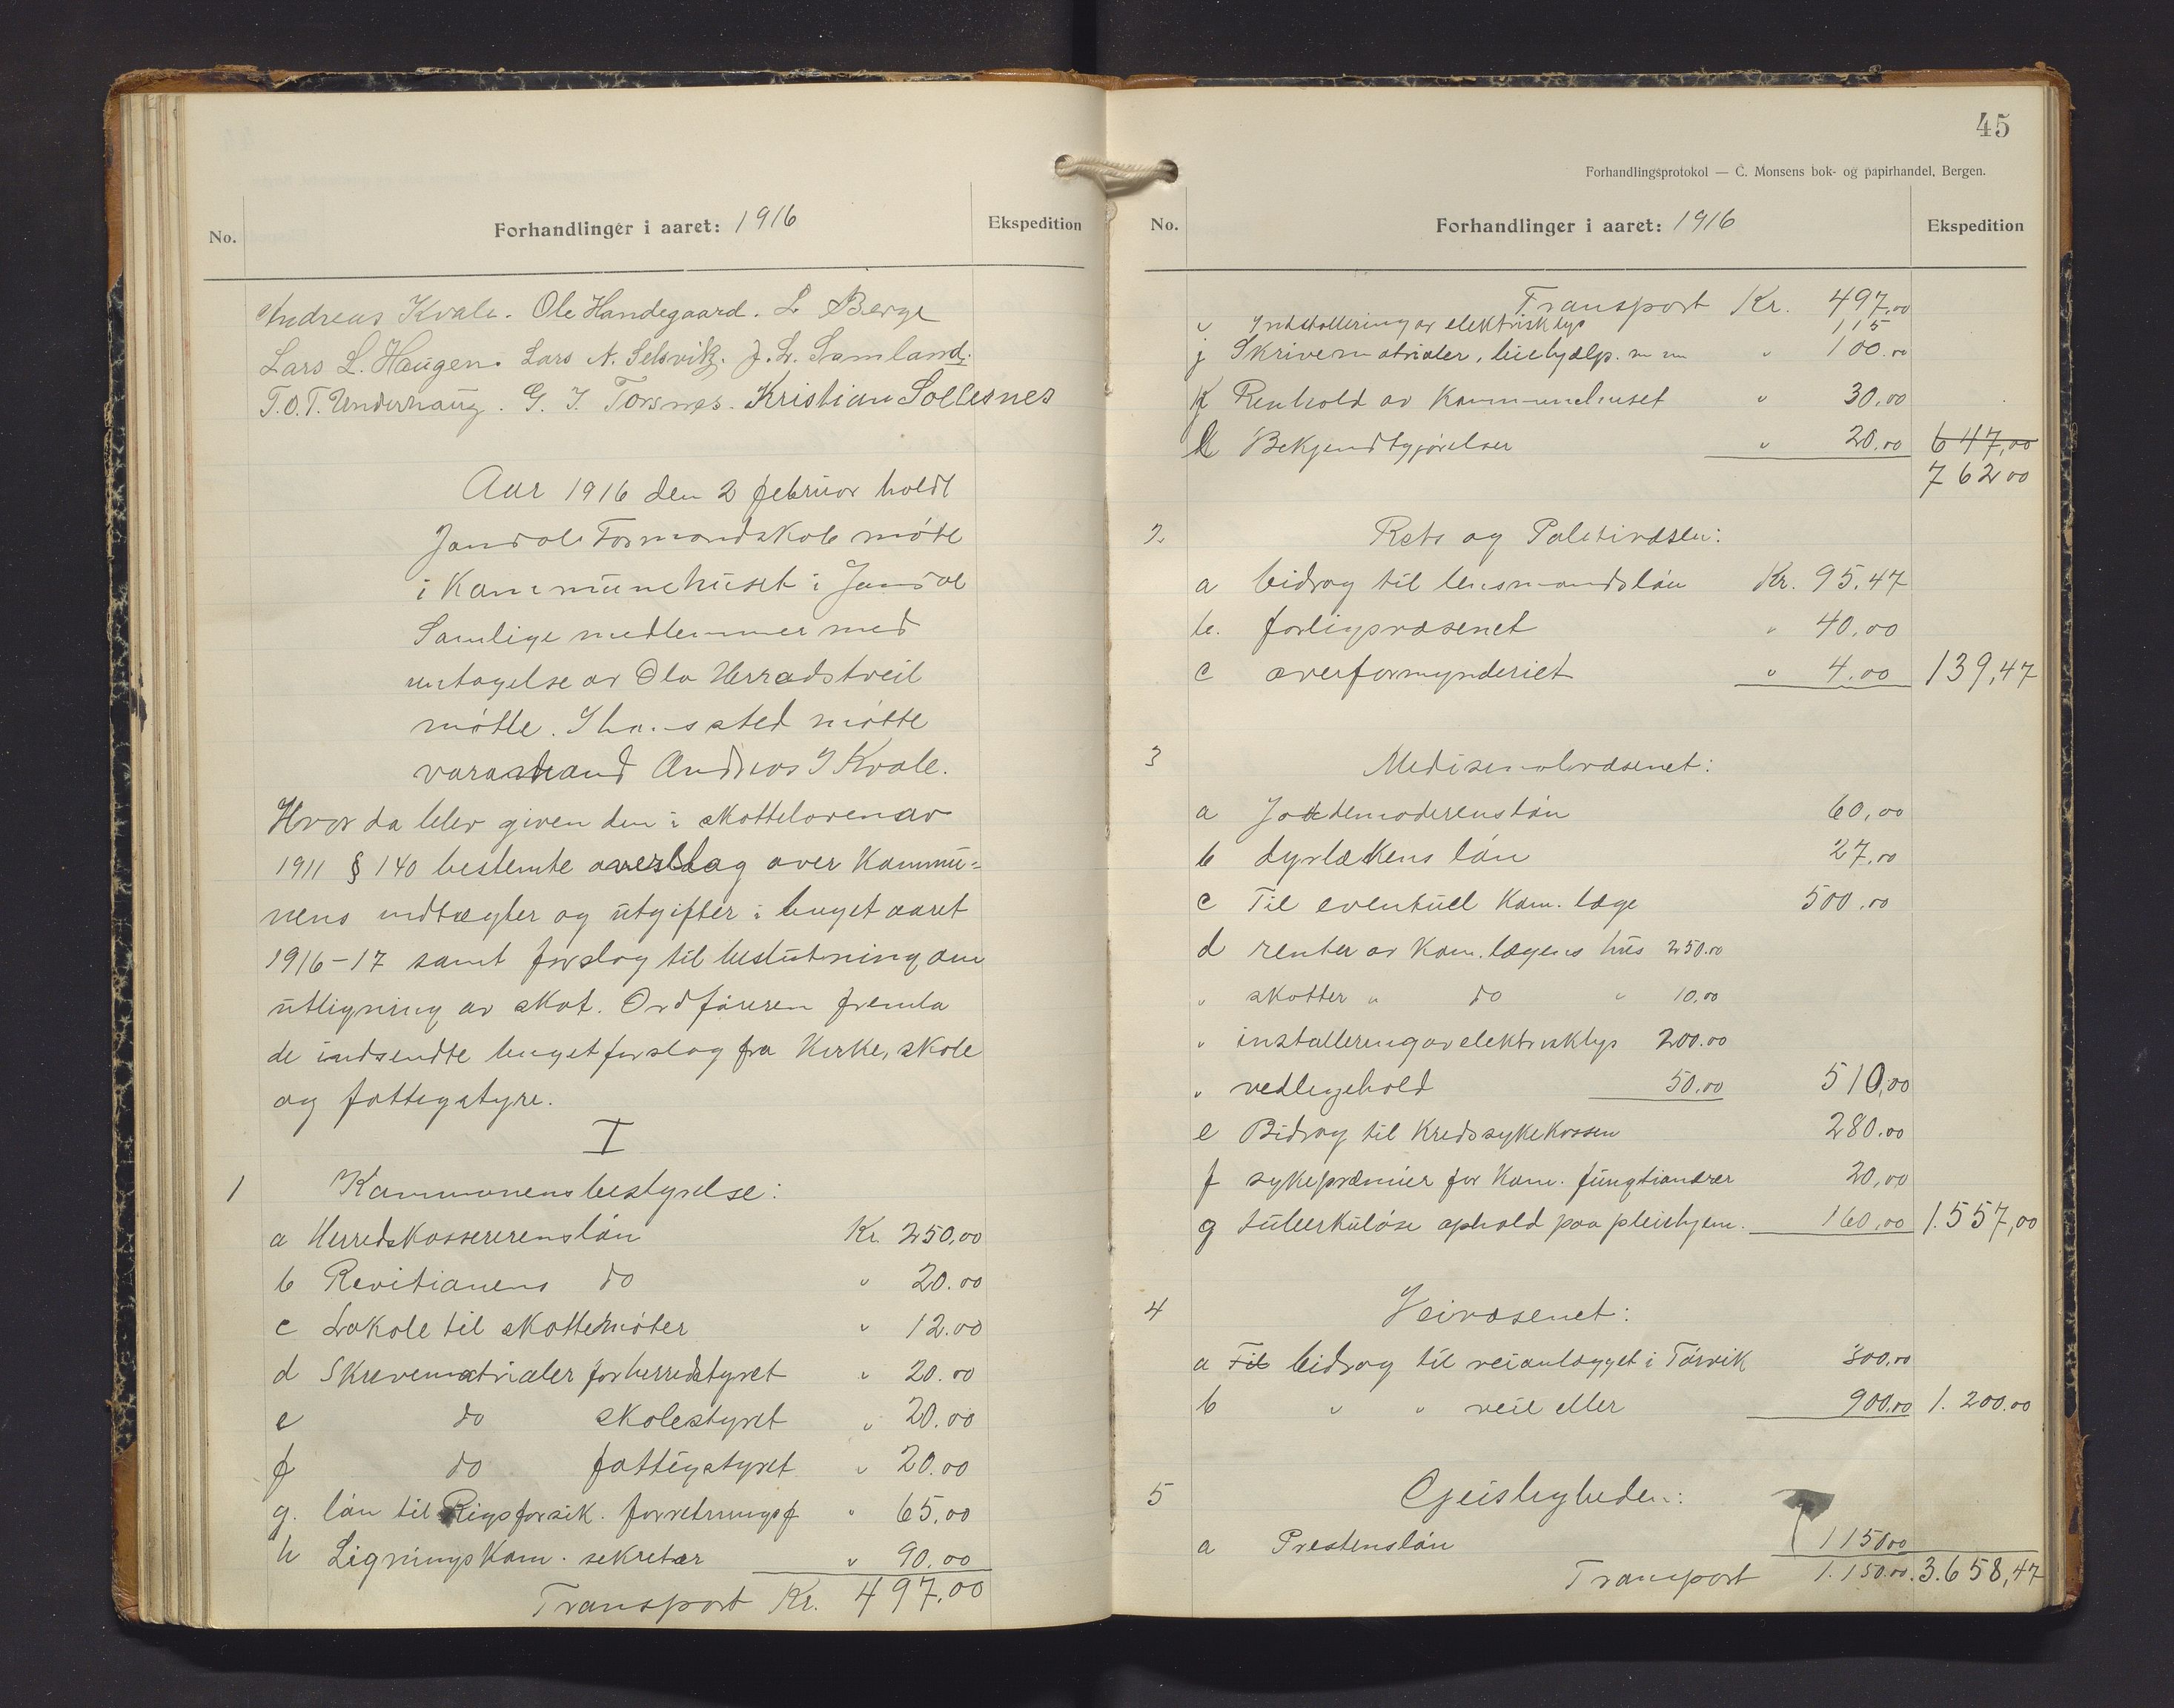 No.
Forhandlinger i aaret: 1916
Ekspedition
Andreas Kvale. Ole Handegaard. L. Berge
Lars L. Haugen. Lars N. Selsvik. J. L. Samland.
T.O.T. Underhaug. G. J. Torsnes. Kristian Sollesnes
Aar 1916 den 2 februar holdt
Jondal Formandskab møte
i Kommunehuset i Jondal
Samlige medlemmer med
untagelse av Ola Herradstveit
møtte. I hans sted møtte
varamand Andreas J Kvale.
Hvor da blev given den i skatteloven av
1911 § 140 bestemte overslag over Kommu=
nens indtægter og utgifter i buget aaret
1916-17 samt forslag til beslutning om
utligning av skat. Ordføreren fremla
de indsendte bugetforslag fra Kirke, skole
og fattigstyre.
I
1 Kommunens bestyrelse:
a Herredskassererens løn Kr 250,00
b Revitionens do " 20.00
c Lokale til skattemøter " 12.00
d Skrevematrialer for herredstyret " 20.00
e do skolestyret " 20.00
f do fattigstyret " 20.00
g. løn til Rigsforsik. forretningsf " 65,00
h Ligningskom. sekretær " 90.00
Transport Kr. 497,00
45
Forhandlingsprotokol — C. Monsens bok- og papirhandel, Bergen.
No.
Forhandlinger i aaret: 1916
Ekspedition
Transport Kr. 497,00
i Indstallering av elektrisk lys 115
j Skrivematrialer, hielp. m m " 100.00
k Renhold av Kommunehuset " 30,00
l Bekjendtgjørelser " 20.00 647,00
762 00
2. Rets og Politivæsen:
a bidrag til lensmandsløn Kr. 95.47
b. forligsvæsenet " 40,00
c overformynderiet " 4.00 139,47
3 Medisinalvæsenet:
a Jordemoderens løn 60,00
b dyrlækens løn 27,00
c Til eventuel Kom. læge 500.00
d renter av Kom. lægens hus 250.00
" skatter " do " 10.00
" installering av elektrisk lys 200.00
" vedligehold 50.00 510,00
e Bidrag til Kredssykekassen 280.00
f sykepræmier for Kom. fungtionærer 20,00
g tuberkuløse ophold paa pleiehjem. 160,00 1.557,00
4 Veivæsenet:
a Til bidrag til veianlægget i Tørvik 300,00
b " " veie eller 900,00 1.200.00
5 Geistligheden:
a Prestens løn 1150 00
Transport 1.150.00. 3.658,47